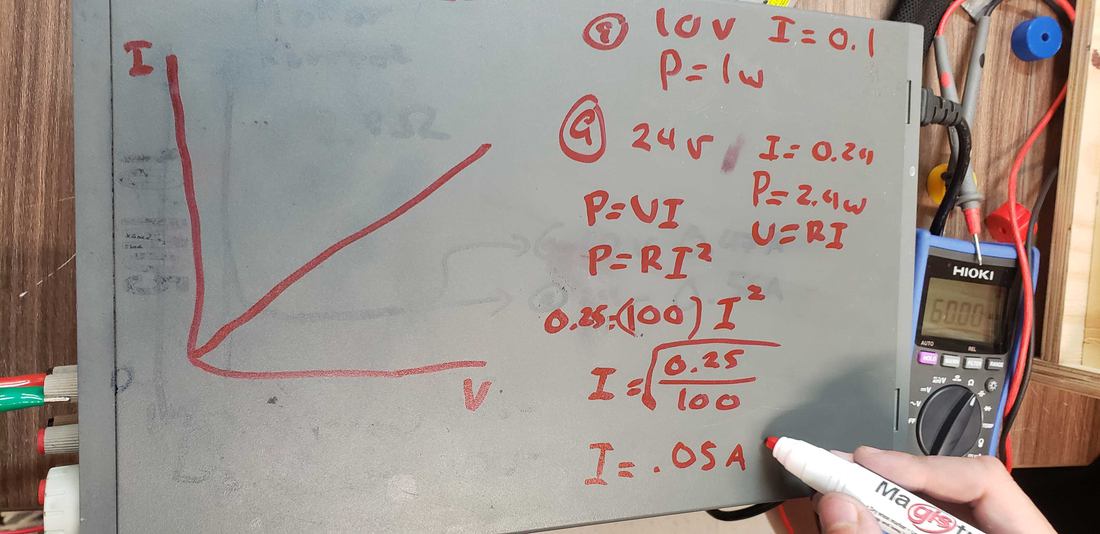 I
V
@ 10V I=0.1
P=1w
@ 24v I=0.24
P=2.4w
P=VI
V=RI
P=RI²
0.25=(100)I²
I=√0.25/100
I=.05A
HIOKI
6.000
AUTO
REL
HOLD
Magic